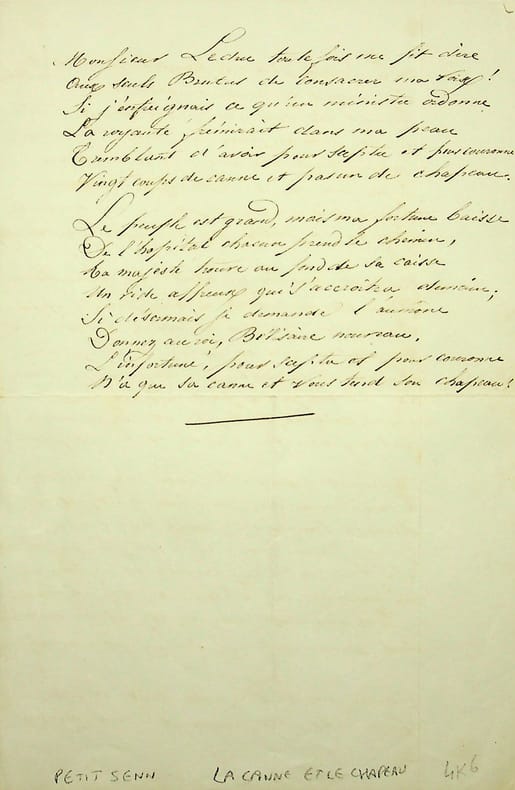 Monsieur Leduc toutefois me fit dire
Aux seuls Brutus de consacrer ma voix!
Si j'enfreignais ce qu'un ministre ordonne
La royauté frémirait dans ma peau
Tremblant d'avoir pour sceptre et pour couronne
Vingt coups de canne et pas un de chapeau.
Le peuple est grand, mais ma fortune baisse
De l'hôpital chacun prend le chemin,
La majesté trouve au fond de sa caisse
Un vide affreux qui s'accroîtra demain;
Si désormais je demande l'aumône
Donnez au roi, Bélisaire nouveau,
L'infortuné, pour sceptre et pour couronne
N'a que sa canne et vous tend son chapeau!
PETIT SENN LA CANNE ET LE CHAPEAU 4K6